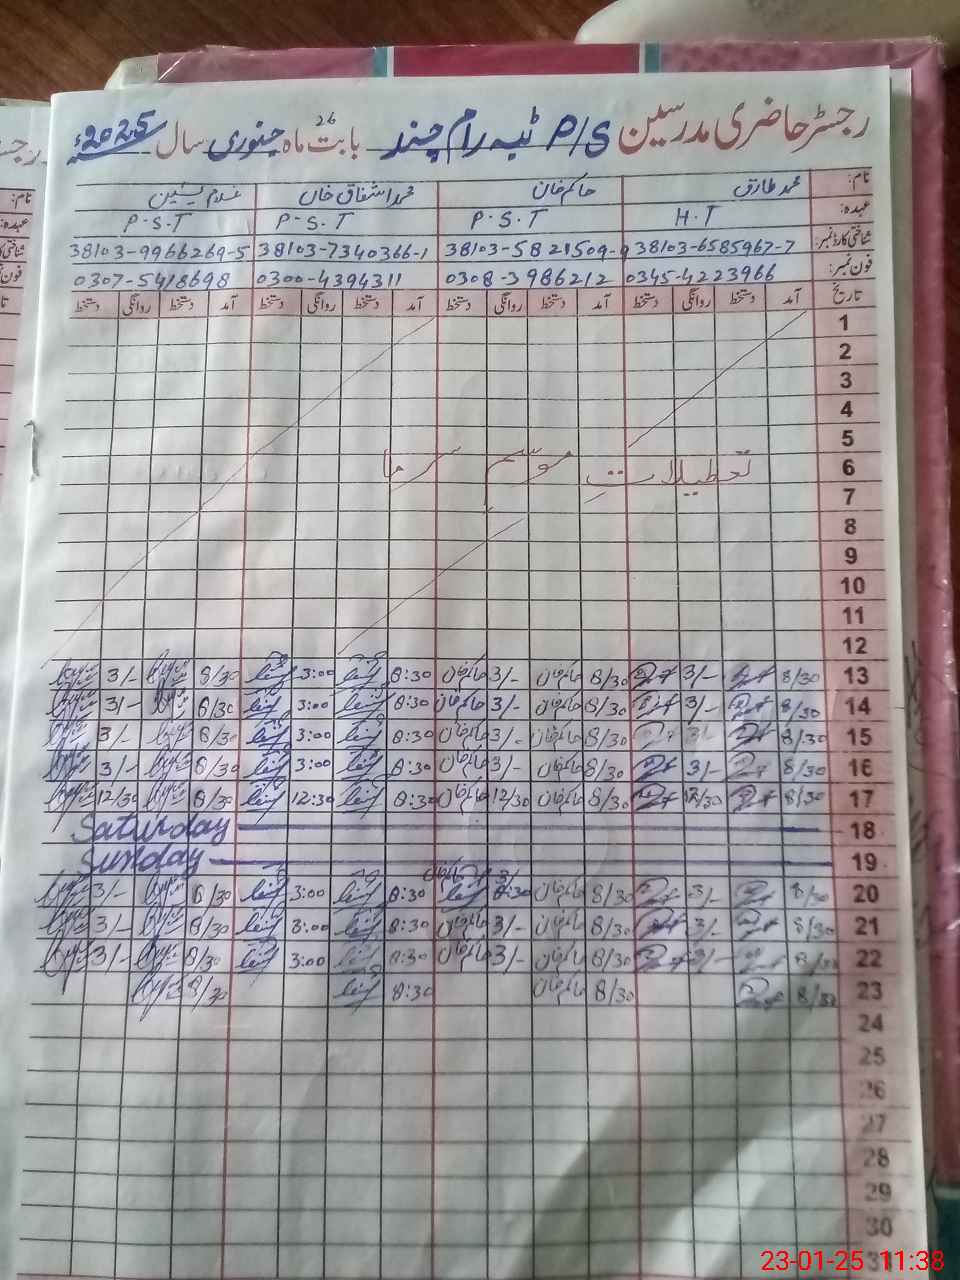 رجسٹر حاضری مدرسین P/S ٹبہ رام چند بابت ماہ جنوری سال 2025ء
26
نام: محمد طارق حاکم خان محمد اشفاق خان غلام یٰسین
عہدہ: H.T P.S.T P.S.T P.S.T
شناختی کارڈ نمبر: 38103-6585967-7 38103-5821509-9 38103-7340366-1 38103-9966269-5
فون نمبر: 0345-4223966 0308-3986212 0300-4394311 0307-5418698
تاریخ آمد دستخط روانگی دستخط آمد دستخط روانگی دستخط آمد دستخط روانگی دستخط آمد دستخط روانگی دستخط
1
2
3
4
5
6 تعطیلات موسم سرما
7
8
9
10
11
12
13 8/30 3/- 8/30 حاکم خان 3/- حاکم خان 8:30 3:00 8/30 3/-
14 8/30 3/- 8/30 حاکم خان 3/- حاکم خان 8:30 3:00 8/30 3/-
15 8/30 3/- 8/30 حاکم خان 3/- حاکم خان 8:30 3:00 8/30 3/-
16 8/30 3/- 8/30 حاکم خان 3/- حاکم خان 8:30 3:00 8/30 3/-
17 8/30 12/30 8/30 حاکم خان 12/30 حاکم خان 8:30 12:30 8/30 12/30
18 Saturday
19 Sunday
20 8/30 3/- 8/30 حاکم خان 3/- حاکم خان 8:30 8:30 3:00 8/30 3/-
21 8/30 3/- 8/30 حاکم خان 3/- حاکم خان 8:30 3:00 8/30 3/-
22 8/30 3/- 8/30 حاکم خان 3/- حاکم خان 8:30 3:00 8/30 3/-
23 8/30 8/30 حاکم خان 8:30 8/30
24
25
26
27
28
29
30
31
23-01-25 11:38